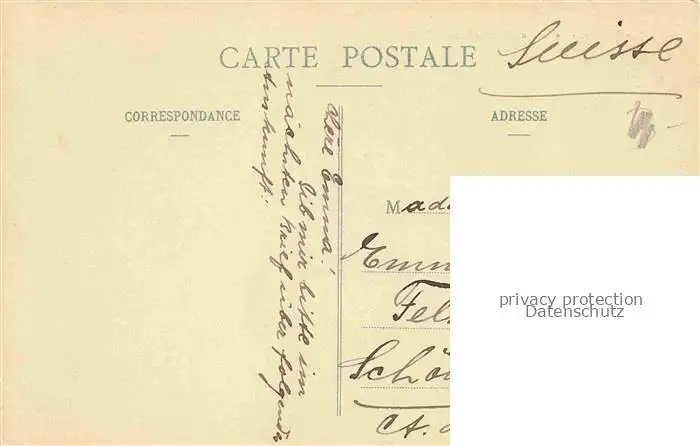 CARTE POSTALE
Suisse
CORRESPONDANCE
ADRESSE
Emma!
Gib mir bitte im
nächsten Brief über folgende
Auskunft:
Mada
Emm
Fel
Schö
Ct.
privacy protection
Datenschutz